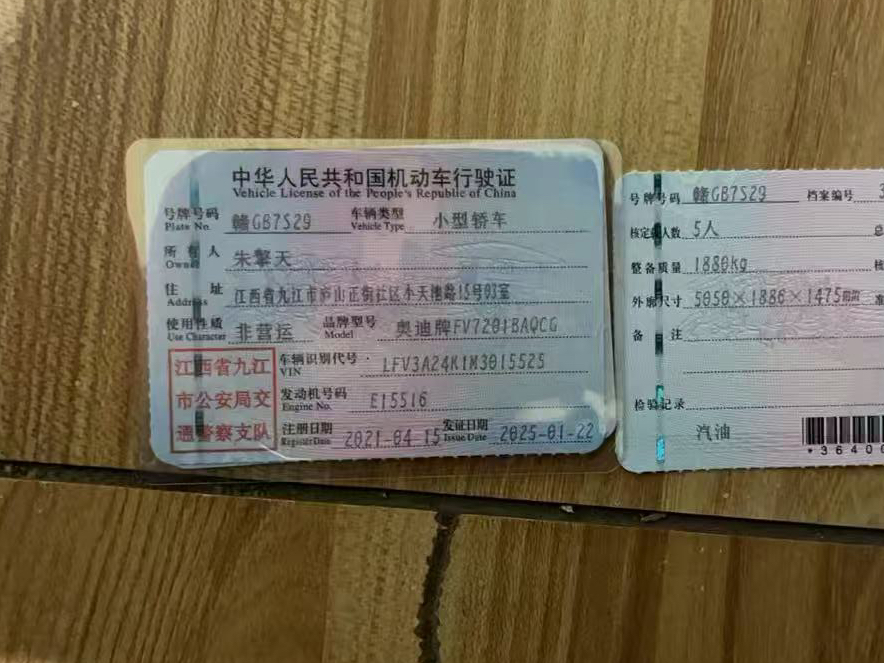 中华人民共和国机动车行驶证
Vehicle License of the People's Republic of China
号牌号码 赣GB7S29 车辆类型 小型轿车
Plate No. Vehicle Type
所有人 朱擎天
Owner
住址 江西省九江市庐山正街社区小天池路15号03室
Address
使用性质 非营运 品牌型号 奥迪牌FV7201BAQCG
Use Character Model
江西省九江
市公安局交
通警察支队
车辆识别代号 LFV3A24K1M3015525
VIN
发动机号码 E15516
Engine No.
注册日期 2021-04-15 发证日期 2025-01-22
Register Date Issue Date
号牌号码 赣GB7S29 档案编号 3
核定载人数 5人 总
整备质量 1880kg 核
外廓尺寸 5050×1886×1475mm 准
备注
检验记录
汽油
*36400